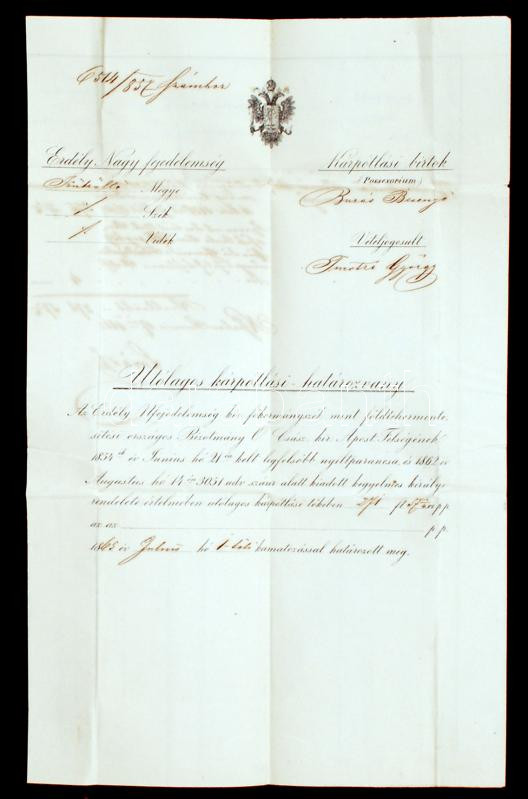 6514/857 számhoz
Erdély Nagyfejedelemség
Megye
Szék
Vidék
Kárpótlási birtok
(Possessorium)
Vételjogosult
Timotei György
Utólagos kárpótlási határozvány
Az Erdély Nfejedelemség kir. főkormányszék mint földtehermente-
sítési országos Bizotmány Ő Csász. kir. Apost. Felségének
1854 év Junius hó 21én kelt legfelsőbb nyiltparancsa, és 1862 év
Augustus hó 14én 3051 udv. szám alatt kiadott kegyelmes királyi
rendelete értelmében utólagos kárpótlási tőkében 271 ft pp
az az p.p.
1863 év hó 1 től kamatozással határozott meg.